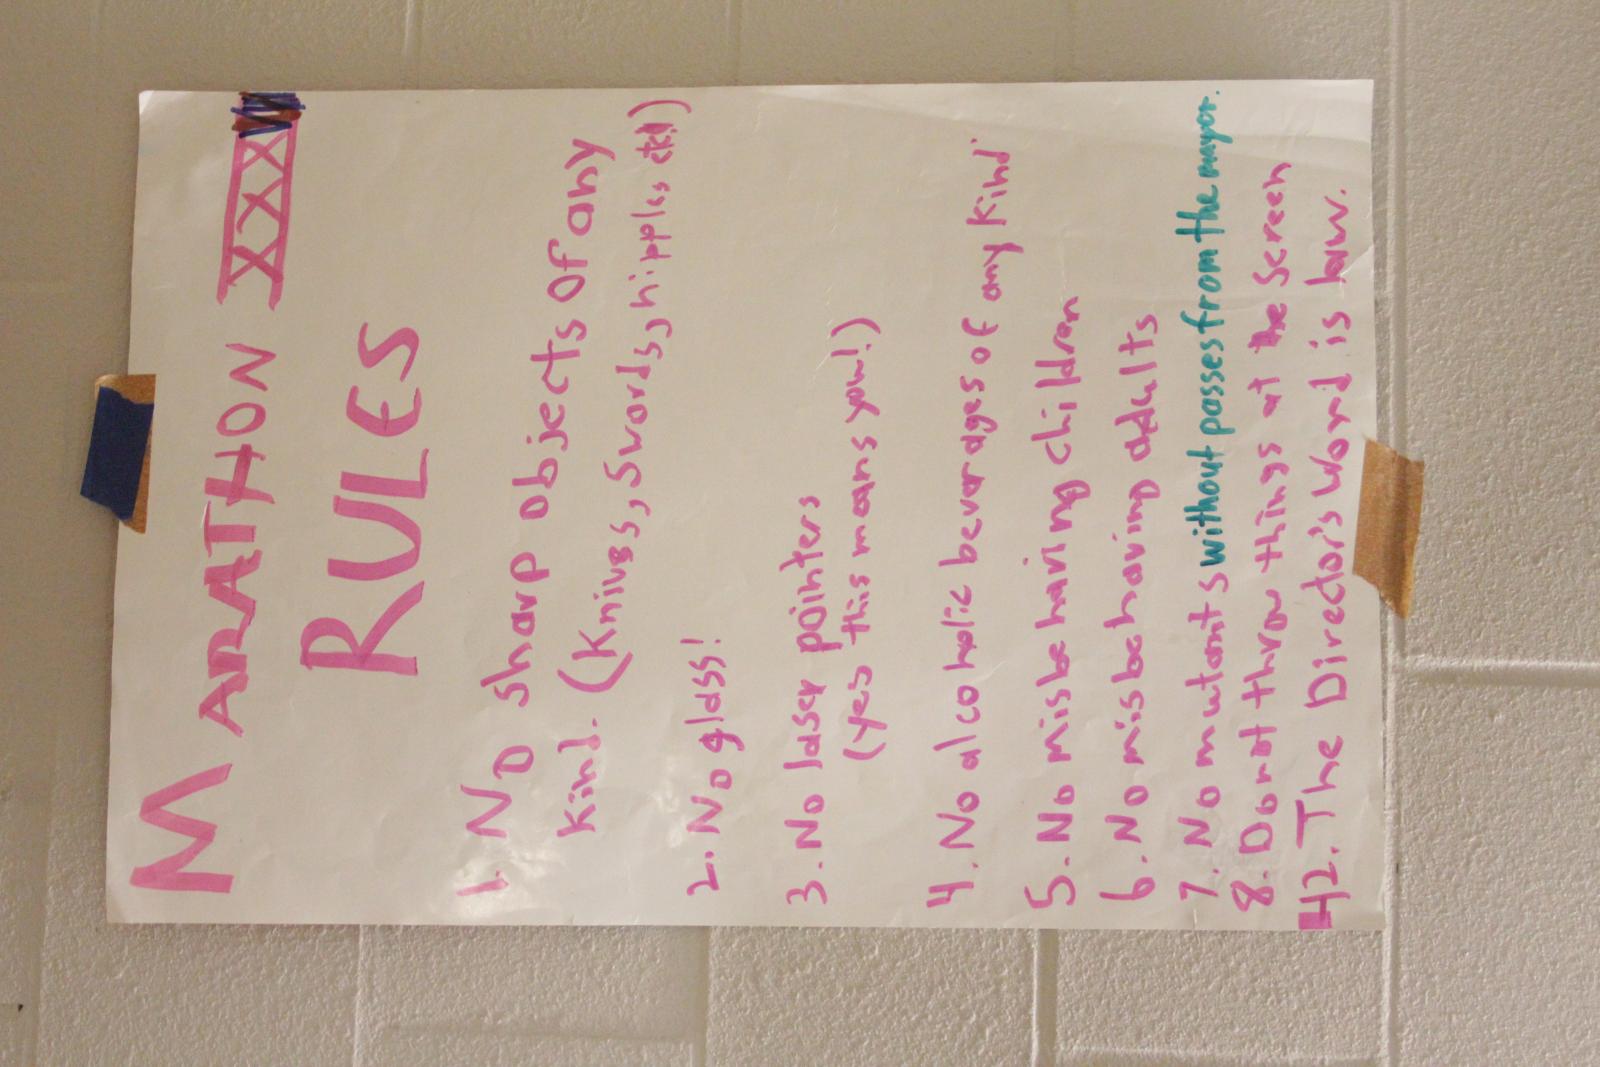 MARATHON XXX
RULES
1. No sharp objects of any
kind. (Knives, Swords, nipples etc!)
2. No glass!
3. No laser pointers
(yes this means you!)
4. No alcoholic beverages of any kind.
5. No misbehaving children
6. No misbehaving adults
7. No mutants without passes from the mayor.
8. Do not throw things at the screen
42. The Director's word is law.